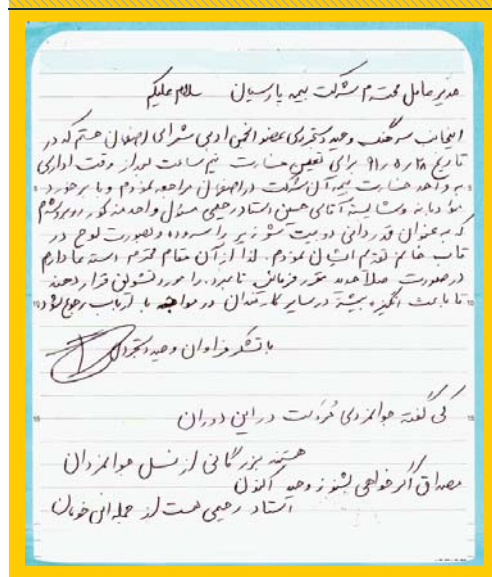 مدیر عامل محترم شرکت بیمه پارسیان سلام علیکم
اینجانب سرهنگ وحید دستجردی عضو انجمن ادبی شعرای اصفهان هستم که در
تاریخ ۹۱/۵/۲۸ برای تعیین خسارت نیم ساعت بعد از وقت اداری
به واحد خسارت بیمه آن شرکت در اصفهان مراجعه نمودم و با برخورد
مؤدبانه و شایسته آقای حسین استاد رحیمی مسئول واحد مذکور روبرو شدم
که به عنوان قدردانی دو بیت شعر زیر را سروده و بصورت لوح در
قاب خاتم تقدیم ایشان نمودم. لذا از آن مقام محترم استدعا دارم
در صورت صلاحدید مقرر فرمائید نامبرده را مورد تشویق قرار دهند
تا باعث انگیزه بیشتر در سایر کارمندان در مواجهه با ارباب رجوع شود
با تشکر فراوان وحید دستجردی
کی گفته جوانمردی در این دوران
هستند بزرگانی از نسل جوانمردان
مصداق اگر خواهی بشنو ز وحید اکنون
استاد رحیمی هست از جمله این خوبان